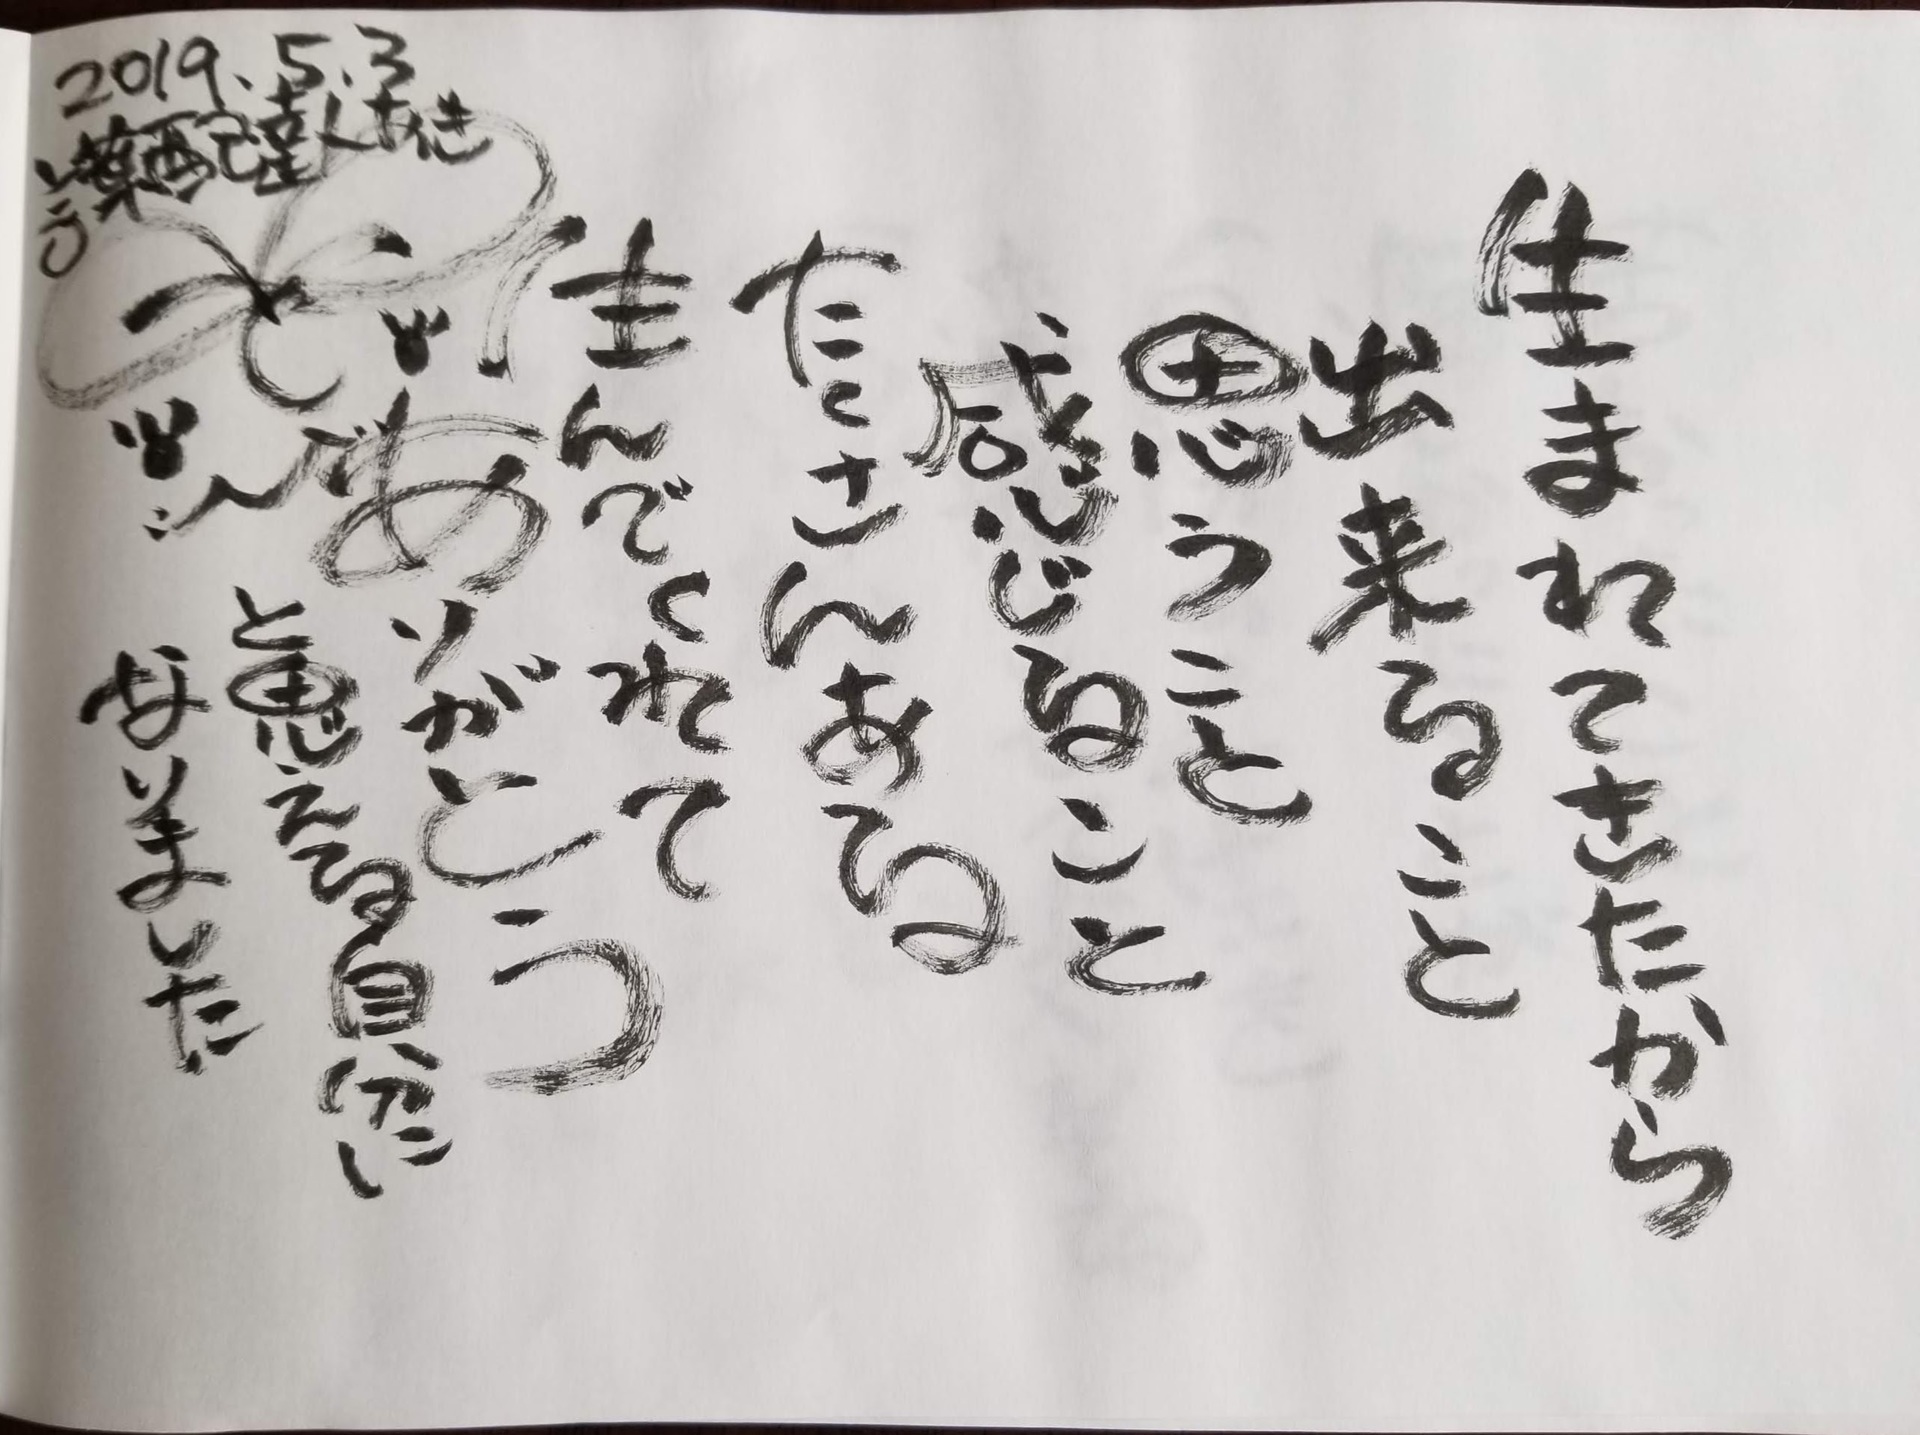 生まれてきたから
出来ること
思うこと
感じること
たさんある
生んでくれて
ありがとう
と思える自分に
なりました
2019.5.3